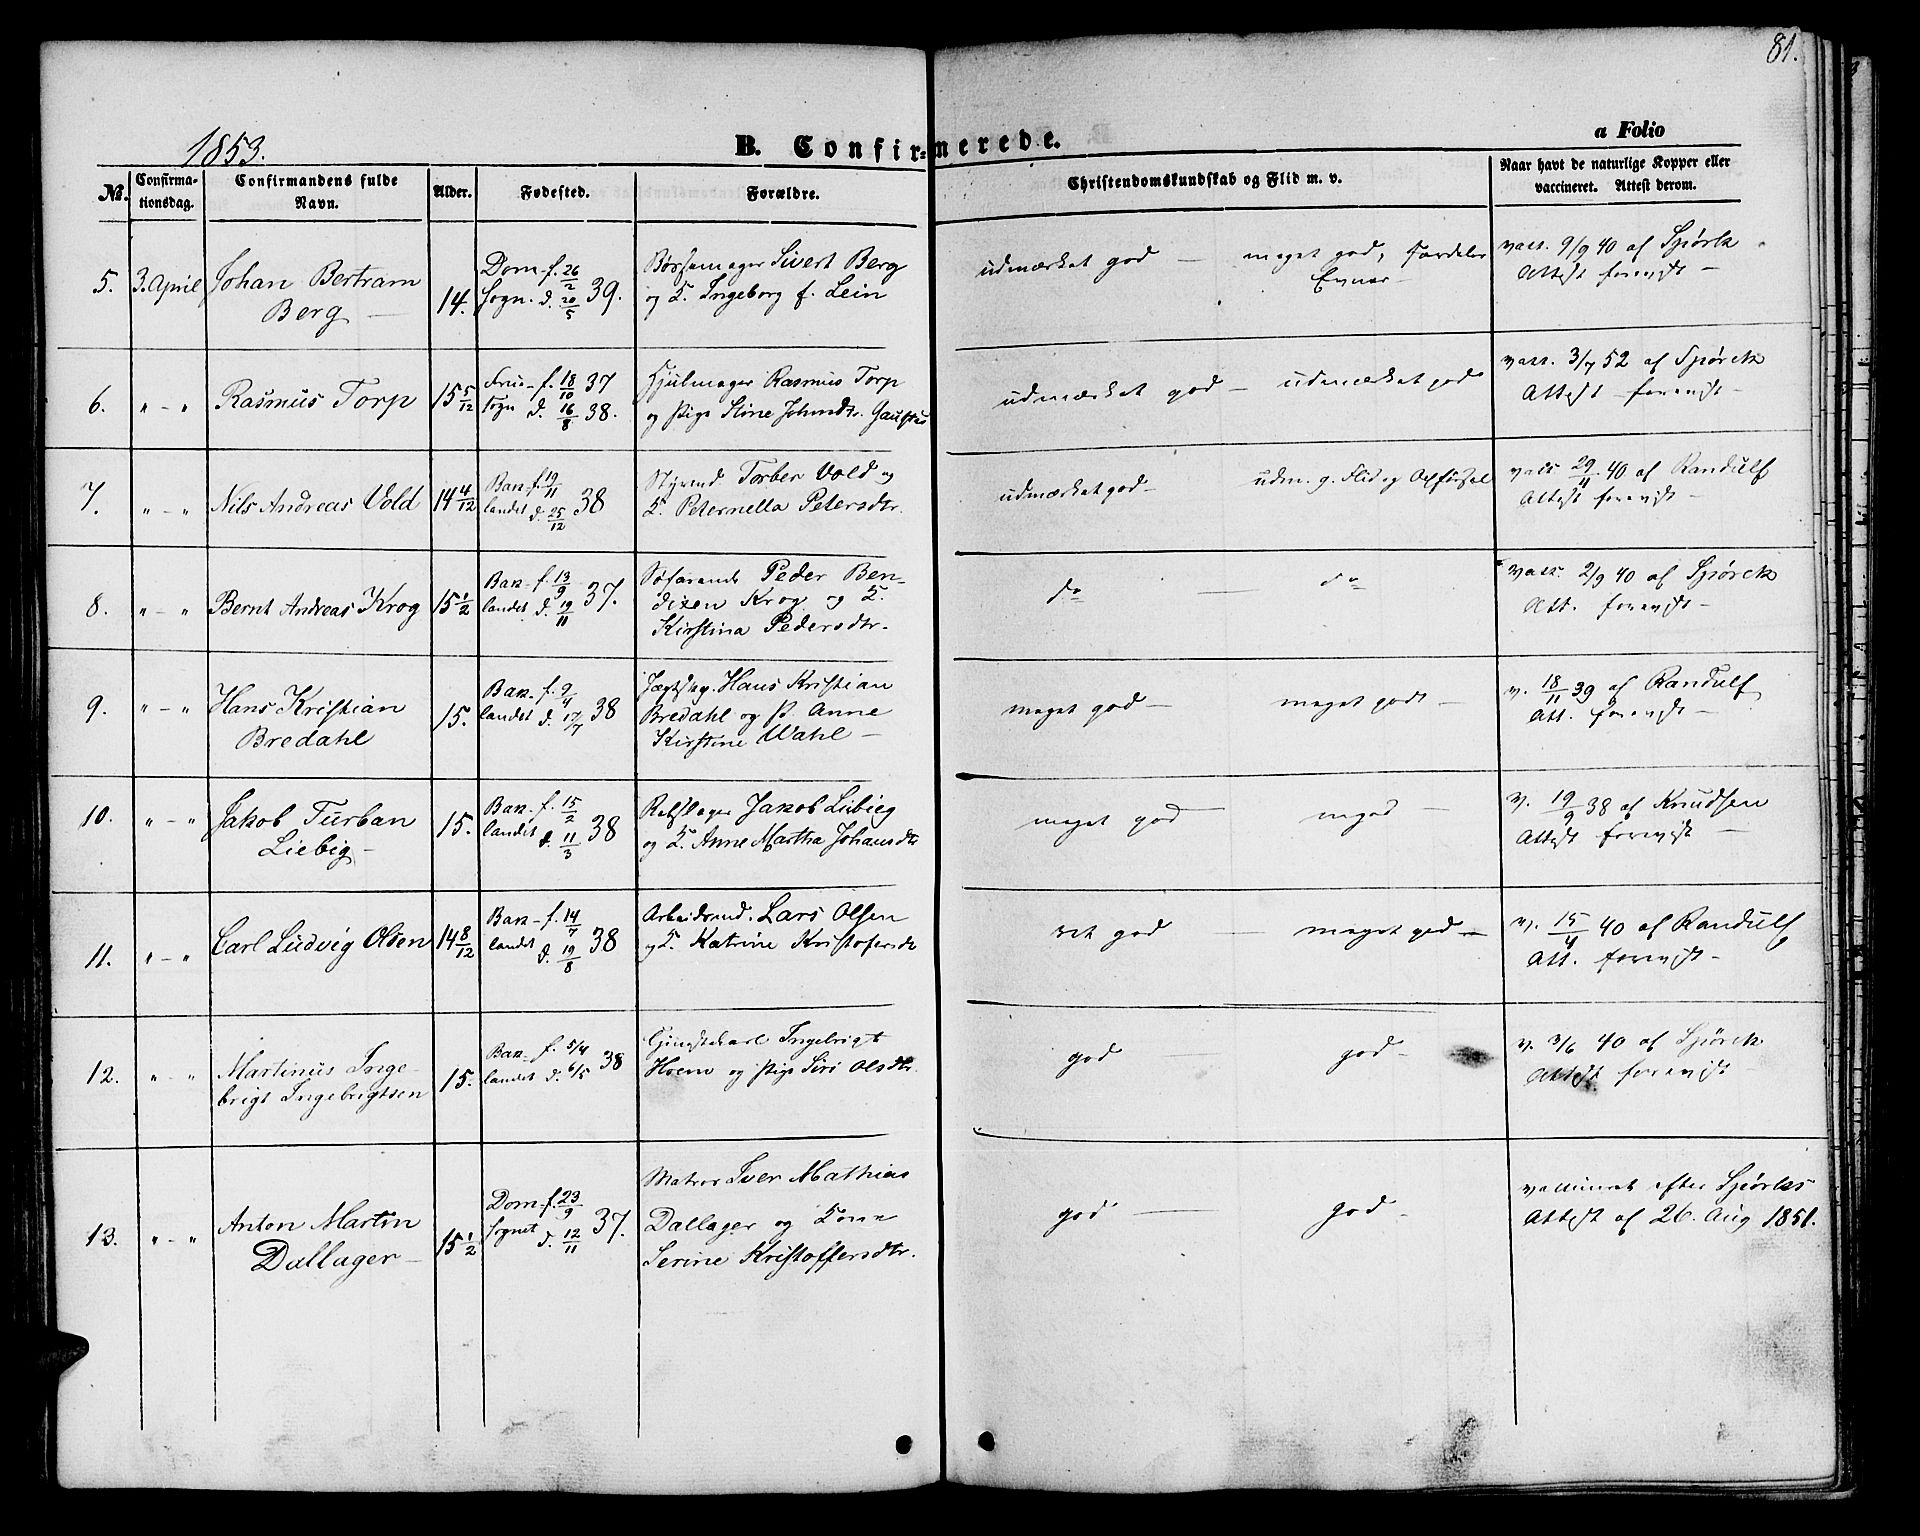 81.
1853.
B. Confirmerede.
a Folio
No. Confirmationsdag. Confirmandens fulde Navn. Alder. Fødested. Forældre. Christendomskundskab og Flid m. v. Naar havt de naturlige Kopper eller vaccineret. Attest derom.
5. 3. April Johan Bertram Berg 14. Dom- f. 26/2 Sogn. d. 20/5 39.
Bøssemager Sivert Berg
og K. Ingeborg f. Lein
udmærket god — meget god, Evner
vacc. 9/9 40 af Spørck
Attest forevist
6. " - " Rasmus Torp 15 5/12 Frue- f. 18/10 37 Sogn d. 16/8 38.
Hjulmager Rasmus Torp
og Pige Stine Johnsdtr.
udmærket god — udmærket god
vacc. 3/7 52 af Spørck
Attest forevist
7. " - " Nils Andreas Vold 14 4/12 Bak- f. 19/11 landet d. 25/12 38
Styrmd Torber Vold og
K. Peternella Petersdtr.
udmærket god — udm. g. Flid og Opførsel
vacc 29/11 40 af Randulf
Attest forevist
8. " - " Bernt Andreas Krog 15 1/2 Bak- f. 13/9 landet d. 19/11 37.
Søfarende Peder Ben-
dixen Krog og K.
Kirstina Pedersdtr.
do — do
vacc. 2/9 40 af Spørck
Att. forevist
9. " - " Hans Kristian Bredahl 15. Bak- f. 9/4 landet d. 17/7 38
Hans Kristian
Bredahl og P. Anne
Kirstine Wahl
meget god — meget god
v. 18/11 39 af Randulf
Att. forevist
10. " - " Jakob Turban Liebig 15. Bak- f. 15/2 landet d. 11/3 38
Rebslager Jakob Liebieg
og K. Anne Martha Johansdtr
meget god — meget —
v. 19/9 38 af Knudsen
Attest forevist
11. " - " Carl Ludvig Olsen 14 8/12 Bak- f. 14/7 landet d. 19/8 38
Arbeidsmd. Lars Olsen
og K. Katrine Kristofersdt
ret god — meget god
v. 15/4 40 af Randulf
Att. forevist
12. " - " Martinus Inge-
brigt Ingebrigtsen 15. Bak- f. 5/4 landet d. 6/5 38
Tjenstekarl Ingebrigt
Hoem og Pige Siri Olsdtr.
god god
v. 3/6 40 af Spørck
Attest forevist
13. " - " Anton Martin Dallager 15 1/2 Dom- f. 23/9 Sognet d. 12/11 37.
Matros Iver Mathias
Dallager og Kone
Serine Kristoffersdtr.
god — god
vaccineret efter Spørcks
Attest af 26. Aug 1851.